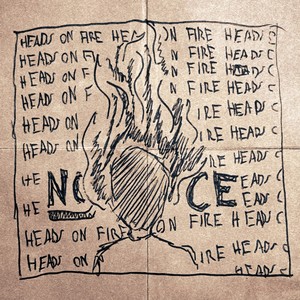 HEADS ON FIRE HEA ON FIRE HEADS C
HEADS ON F N FIRE HEADS C
HEADS ON F N FIRE HEADS C
HEADS ON F N FIRE HEADS C
HEADS ON IRE HEADS C
HEADS ON IRE HEADS C
HE NO CE EADS C
HE FIRE HEADS C
HEADS ON FIRE ON FIRE HEADS C
HEADS ON IRE HEADS C